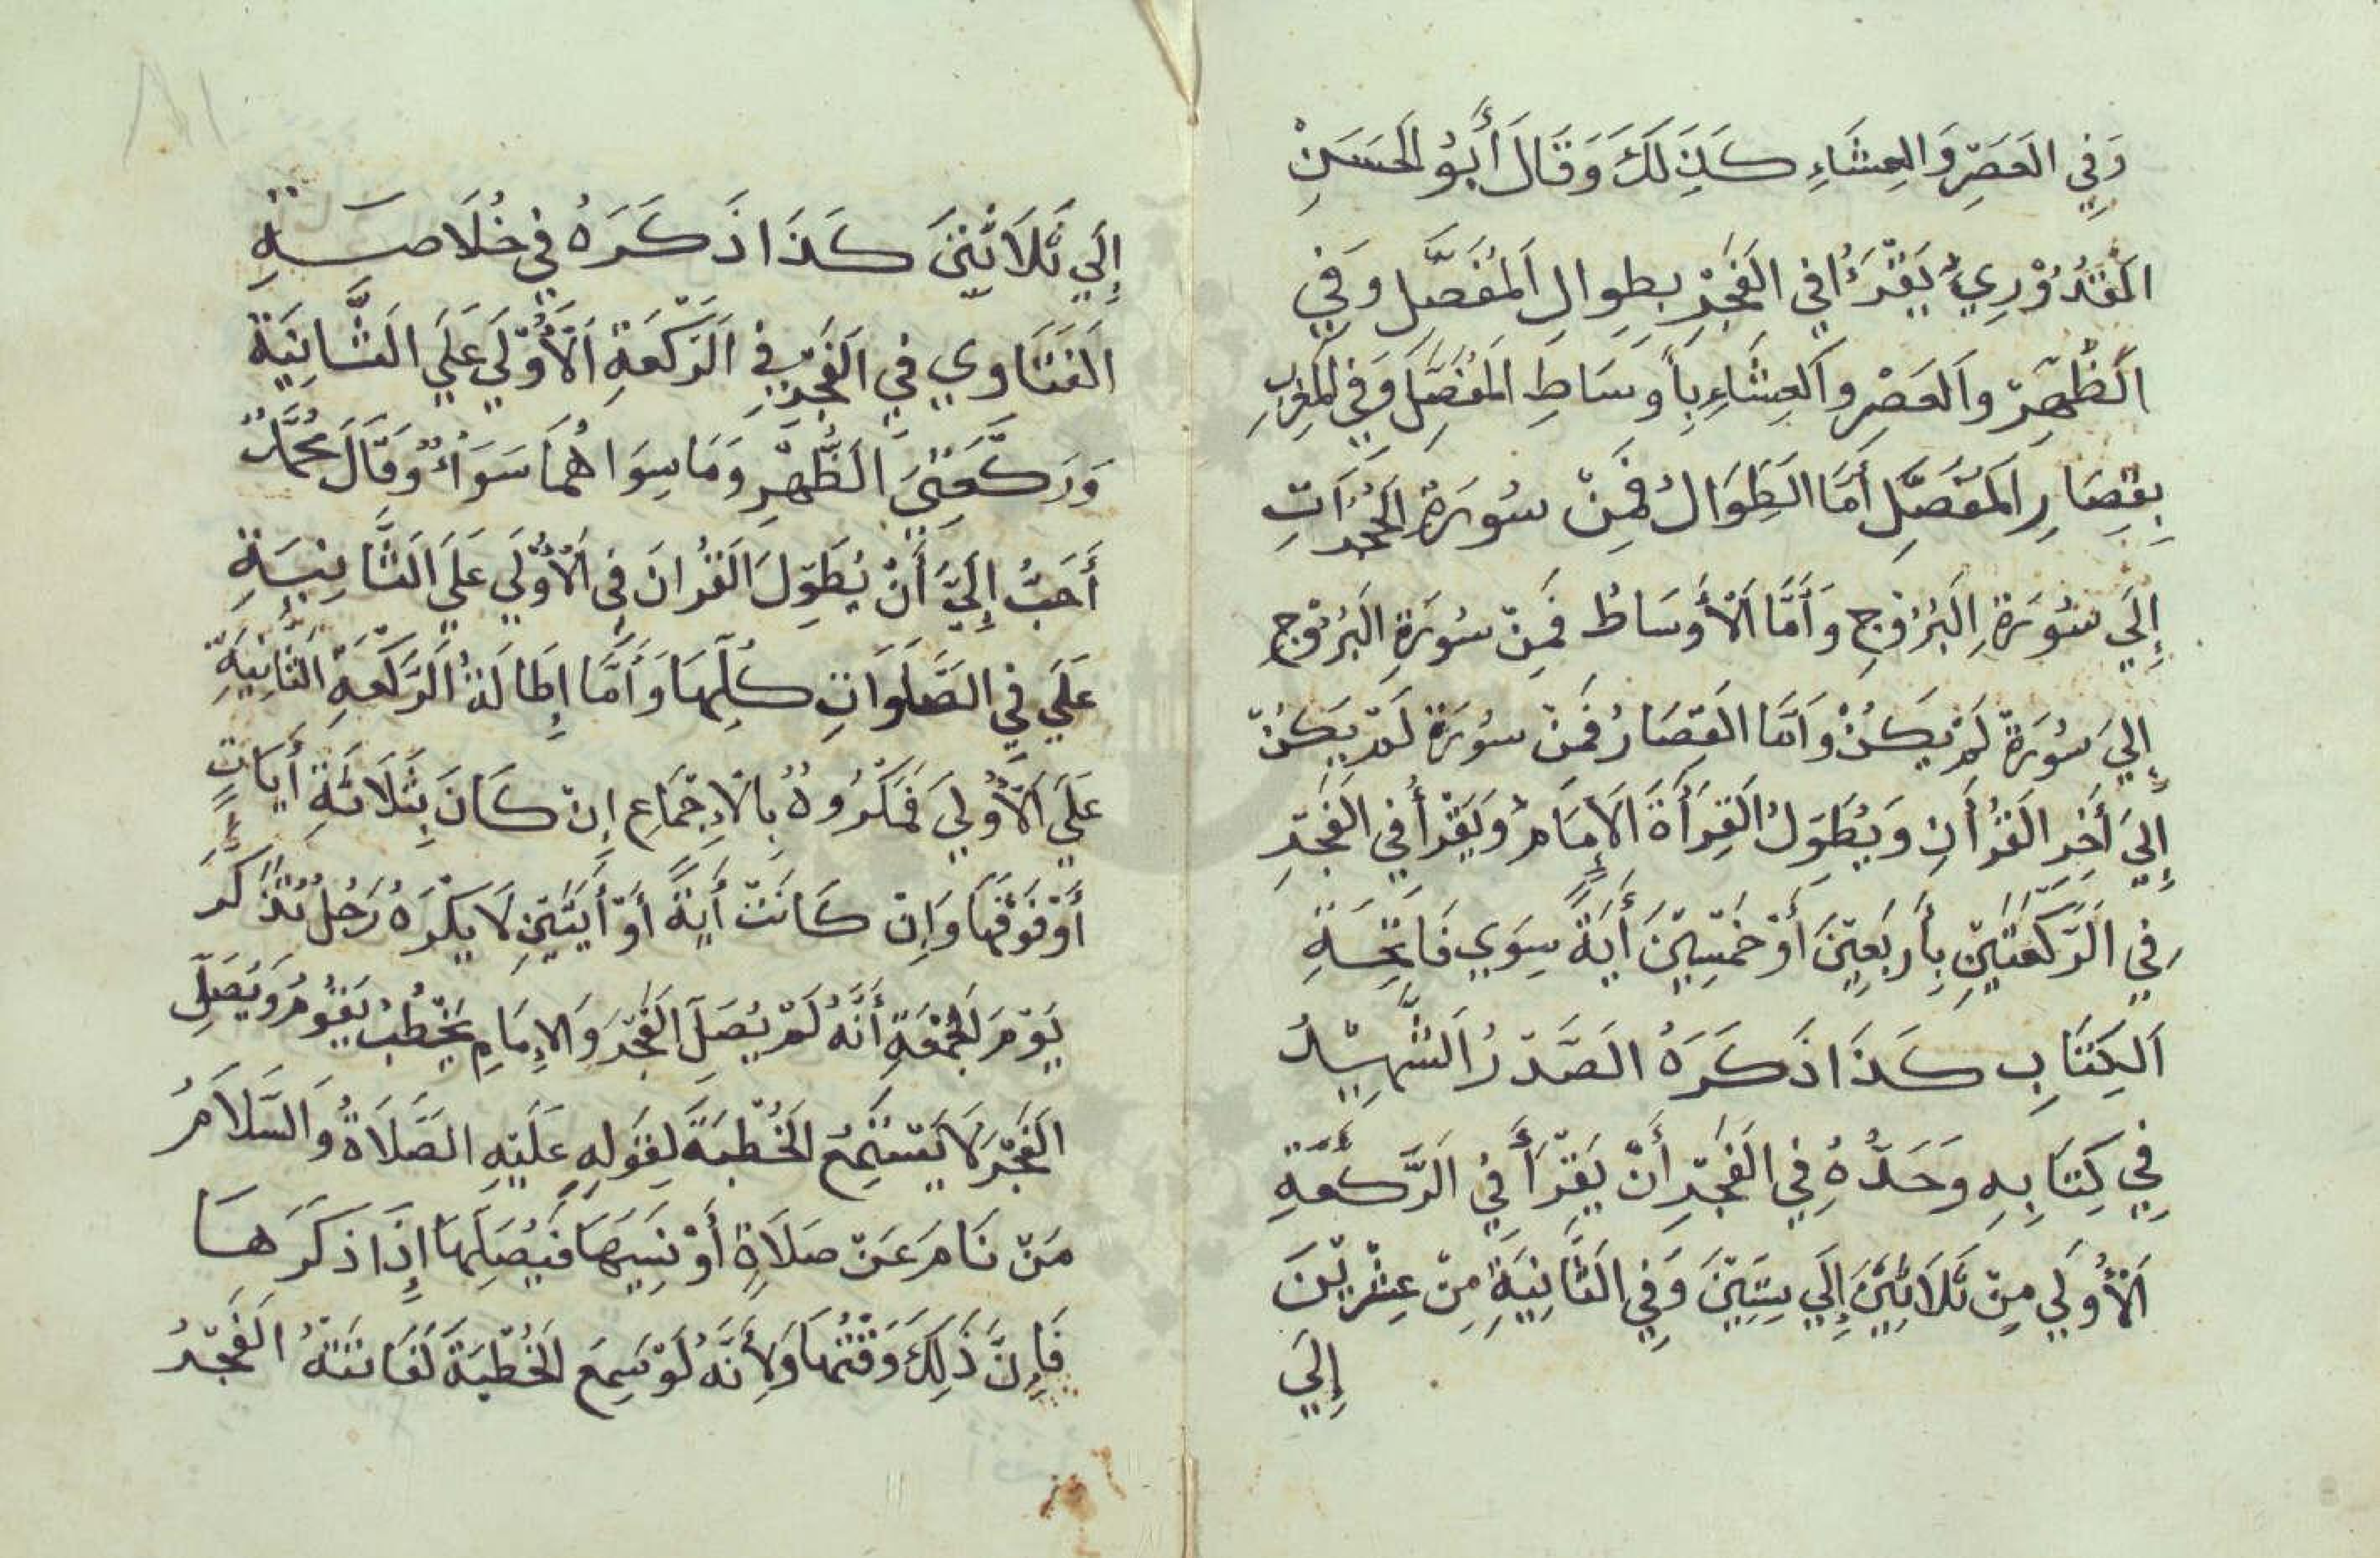 وَفِي العَصَرِ وَالعِشَاءِ كَذَلِكَ وَقَالَ أَبُو الحَسَنِ
القُدُوْرِي يَقْرَءُ في الفَجْرِ بِطِوالِ المُفَصَّلِ وَفِي
الظُهْرِ والعَصْرِ والعِشَاءِ بِأَوسَاطِ المُفَصَّلِ وَفِي المَغْرِبِ
بِقِصَارِ المُفَصَّلِ أَمَّا الطِوَالُ فَمِنْ سُورَةِ الحُجُرَاتِ
إِلَي سُورَةِ البُرُوجِ وَأَمَّا الأَوسَاطُ فَمِنْ سُورَةِ البُرُوجِ
إِلَي سُورَةِ لَمْ يَكُنْ وَأَمَّا القِصَارُ فَمِنْ سُورَةِ لَمْ يَكُنْ
إِلَي أَخِرِ القُرْأَنِ وَيُطَوِلُ القِرَأَةَ الإِمَامُ وَيَقْرَأُ فِي الفَجْرِ
فِي الرَّكْعَتَيْنِ بِأَرْبَعِيْنَ أَوْ خَمْسِيْنَ أَيَةً سِوَي فَاتِحَةِ
الكِتَابِ كَذَا ذَكَرَهُ الصَّدْرُ الشَّهِيْدُ
فِي كِتَابِهِ وَحَدُّهُ فِي الفَجْرِ أَنْ يَقْرَأَ فِي الرَّكْعَةِ
الأُوْلَي مِنْ ثَلَاثِيْنَ إِلَي سِتِيْنَ وَفِي الثَانِيَةِ مِنْ عِشْرِيْنَ
إِلَي
٨١
إِلَي ثَلَاثِيْنَ كَذَا ذَكَرَهُ فِي خُلَاصَةِ
الفَتَاوِي فِي الفَجْرِ فِي الرَّكْعَةِ الأُوْلَي عَلَي الثَّانِيَةِ
وَرَكْعَتَيِ الظُّهْرِ وَمَا سِوَاهُمَا سَوَاءٌ وَقَالَ مُحَمَّدٌ
أَحَبُّ إِلَيَّ أَنْ يُطَوِّلَ القُرْانَ فِي الأُوْلَي عَلَي الثَّانِيَةِ
عَلَي فِي الصَّلَوَاتِ كُلِّهَا وَأَمَّا إِطَالَةُ الرَّكْعَةِ الثَانِيَةِ
عَلَي الأُوْلَي فَمَكْرُوهٌ بِالإِجْمَاعِ إِنْ كَانَ بِثَلَاثَةِ أَيَاتٍ
أَوْ فَوْقَهَا وَإِنْ كَانَتْ أَيَةً أَوْ أَيَتَيْنِ لَا يَكْرَهُ رَجُلٌ تَذَكَّرَ
يَوْمَ الجُمْعَةِ أَنَّهُ لَمْ يُصَلِّ الفَجْرَ وَالإِمَامِ يَخْطُبُ يَقُومُ وَيُصَلِّ
الفَجْرَ لَا يَسْتَمِعُ الخُطْبَةَ لِقَولِهِ عَلَيْهِ الصَّلَاةُ وَالسَّلَامُ
مَنْ نَامَ عَنْ صَلَاةٍ أَوْ نَسِيَهَا فَيُصَلِّهَا إِذَا ذَكَرَهَا
فَإِنَّ ذَلِكَ وَقْتُهَا وَلِأَنَّهُ لَوْ سَمِعَ الخُطْبَةَ لَفَاتَتْهُ الفَجْرُ